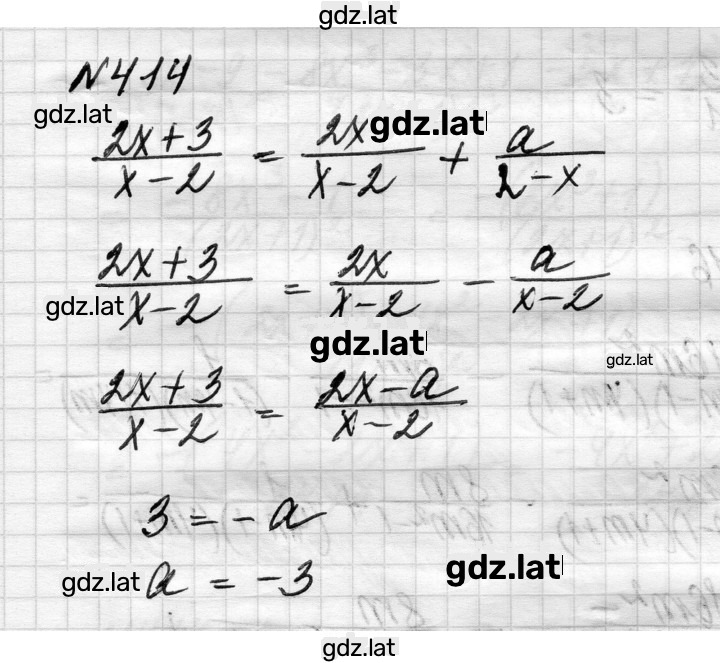 gdz.lat
№414
gdz.lat
2x+3 / x-2 = 2x / x-2 + a / 2-x
gdz.lat
2x+3 / x-2 = 2x / x-2 - a / x-2
gdz.lat
gdz.lat
gdz.lat
2x+3 / x-2 = 2x-a / x-2
3 = -a
gdz.lat
a = -3
gdz.lat
gdz.lat